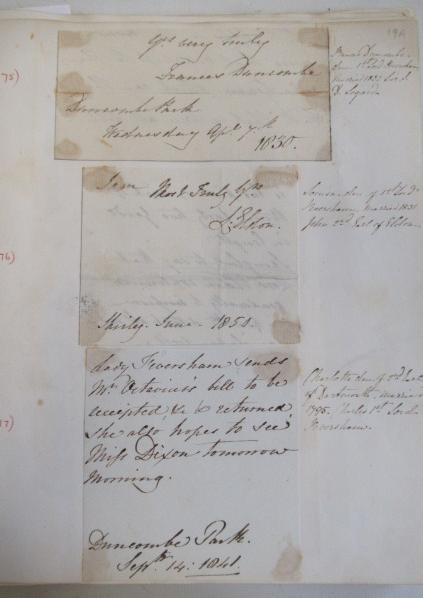 19A
75)
Yrs very truly
Frances Duncombe
Duncombe Park
Wednesday Apl 7th
1830.
Frances Duncombe
dau. 1st Lord Feversham
married 1832 Sir J.
76)
I am Most Truly Yrs
L. Eldon.
Shirley. June. 1850.
Louisa dau. of 1st Lord
Feversham, married 1831
John 2nd Earl of Eldon.
77)
Lady Feversham sends
Mr. Octavius's bill to be
accepted & returned
she also hopes to see
Miss Dixon tomorrow
Morning.
Duncombe Park.
Septr 14: 1841.
Charlotte dau of 2nd Earl
of Dartmouth, married
1795, Charles 1st Lord
Feversham.